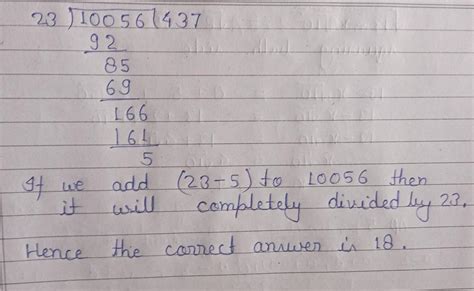 23 ) 10056 ( 437
92
85
69
166
161
5
If we add (23-5) to 10056 then
it will completely divided by 23.
Hence the correct answer is 18.